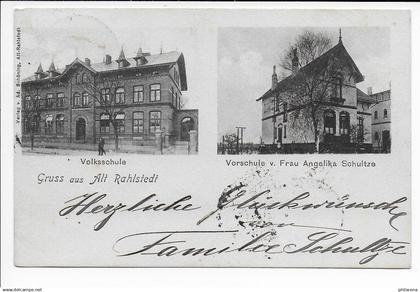 Verlag v. Ad. Sibbeling, Alt-Rahlstedt
Volksschule
Vorschule v. Frau Angelika Schultze
Gruss aus Alt Rahlstedt
Herzliche Glückwünsche
Familie Schultze